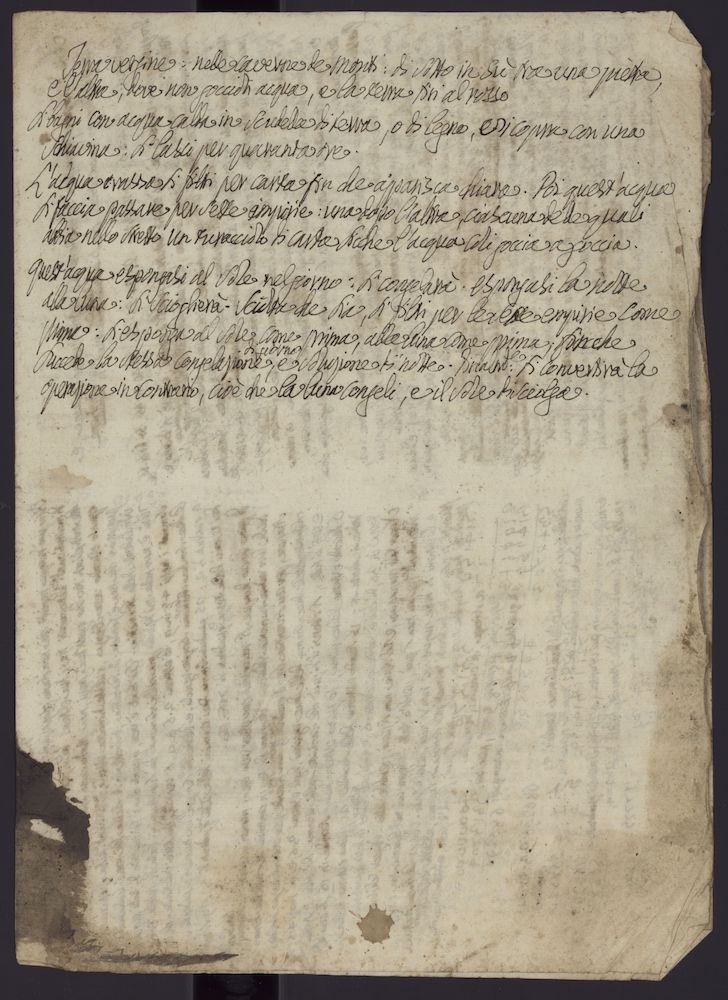 Terra vergine: nelle caverne de monti: di sotto in sù tra una pietra,
e l'altra, dove non goccioli acqua, e la terra tiri al rosso
Si bagni con acqua calda in scudella di terra, o di legno, e si copra con una
schiavina: Si lasci per quaranta ore.
L'acqua si filtri per carta fin che apparisca chiara. Poi quest'acqua
si faccia passare per sette : una dopo l'altra, ciascuna delle quali
abbia nello stretto un turacciolo di carta, sicche l'acqua coli goccia a goccia.
Quest'acqua espongasi al Sole nel giorno: si congelarà. espongasi la notte
alla Luna: si scioglierà. che sia, si filtri per le come
prima: Si esponga al Sole come prima, alla Luna come prima, finche
succeda la stessa congelazione di giorno, e soluzione di notte. si convertirà la
operazione in contrario, cioè che la Luna congeli, e il Sole disciolga.